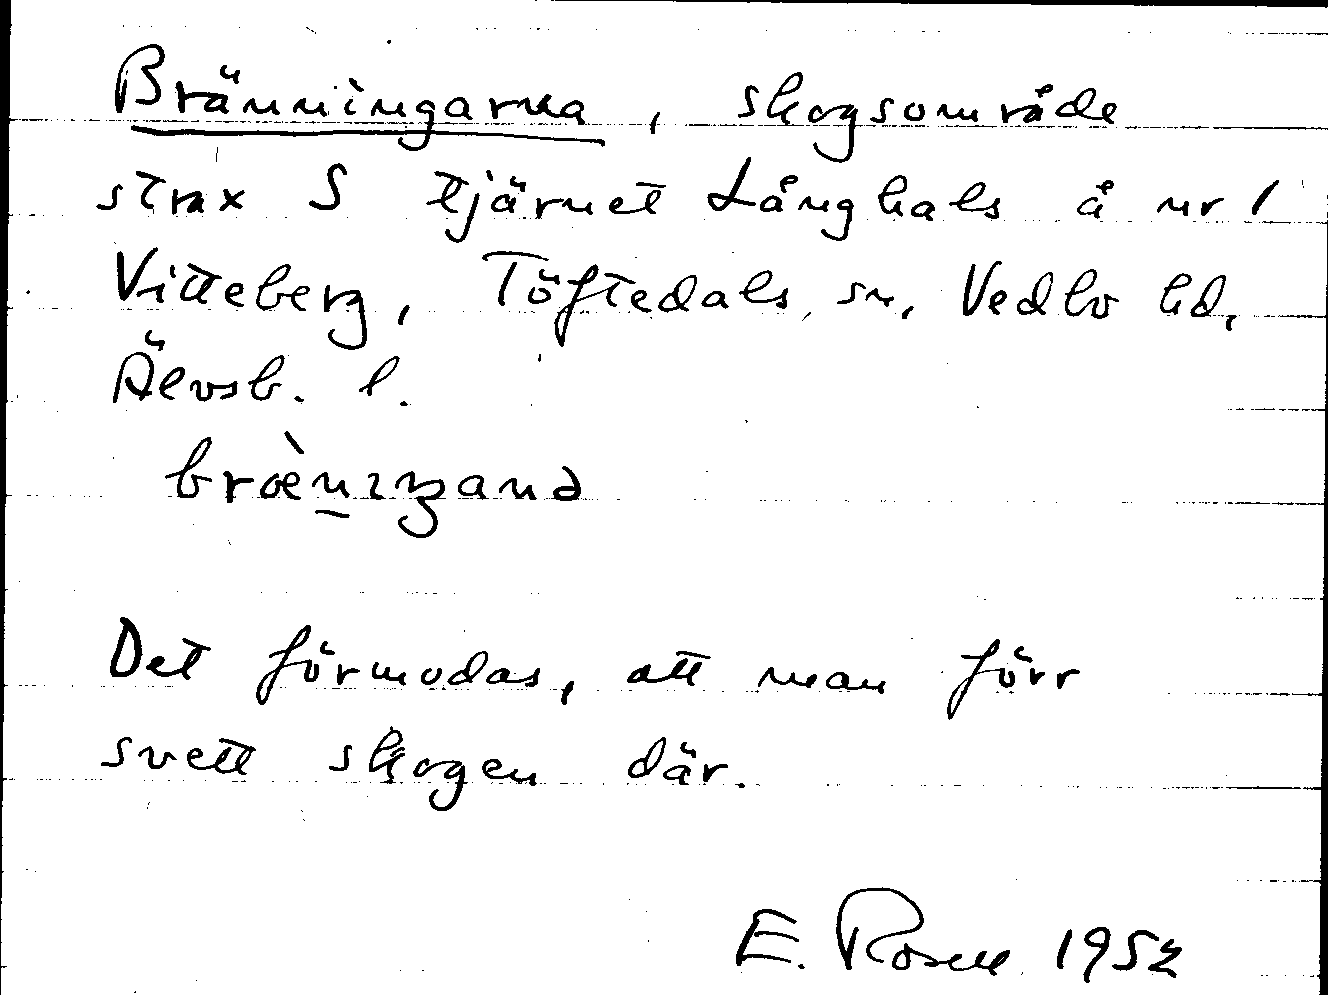 Bränningarna, skogsområde
strax S tjärnet Långhals å nr 1
Vitteberg, Töftedals sn, Vedbo hd,
Älvsb. l.
Det förmodas, att man förr
svett skogen där.
E. Rosell 1952